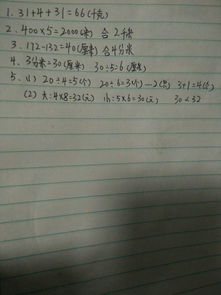 1. 31+4+31=66(千克)
2. 400×5=2000(米) 合2千米
3. 172-132=40(厘米) 合4分米
4. 3分米=30(厘米) 30÷5=6(厘米)
5. (1) 20÷4=5(个) 20÷6=3(个)…2(个) 3+1=4(个)
(2) 大:4×8=32(元) 小:5×6=30(元) 30<32